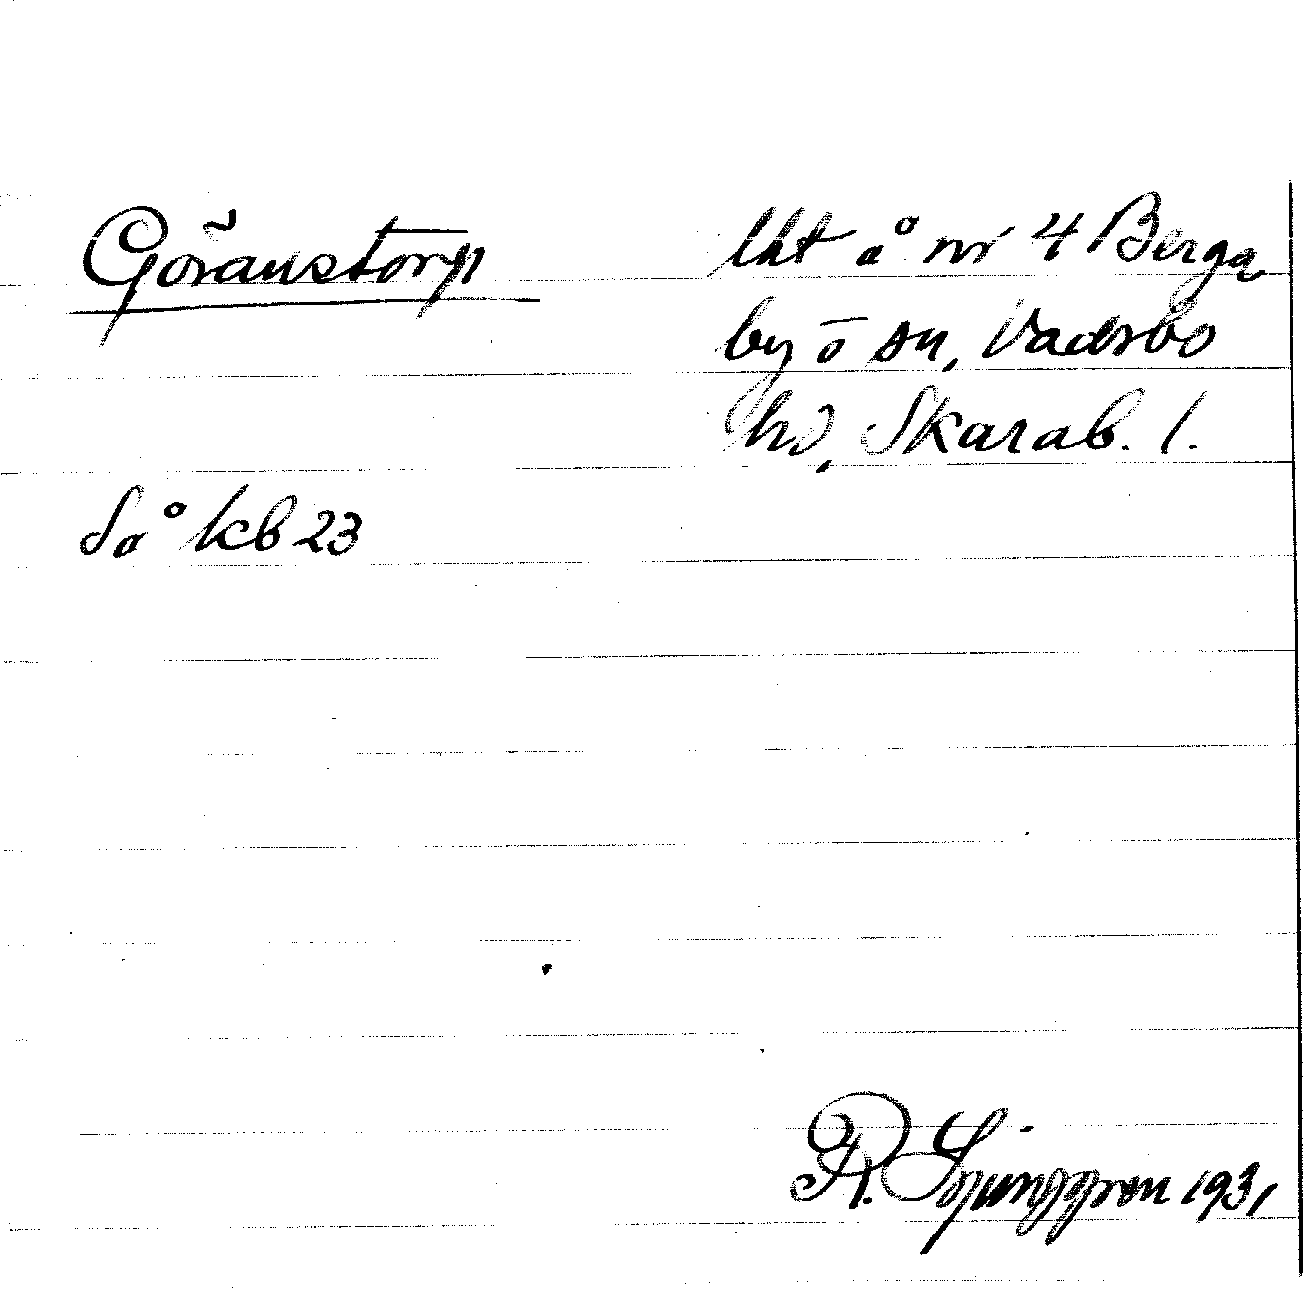 Göranstorp
lht å nr 4 Berga
by ō sn, Vadsbo
hd, Skarab. l.
Så kb 23
R. Ljunggren 1931